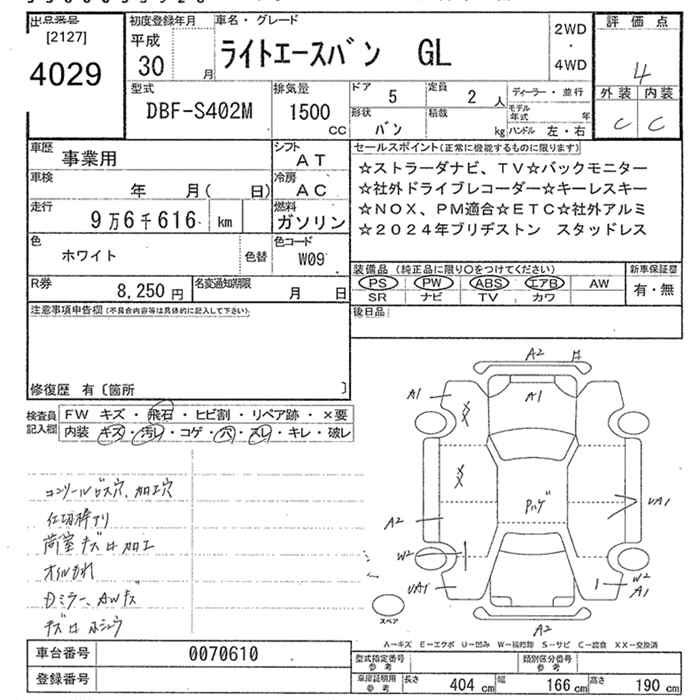 出品番号 初度登録年月 車名・グレード 評価点
[2127] 平成 ライトエースバン GL 2WD
4029 30 月 ・ 4WD 4
型式 排気量 ドア 5 定員 2 人 ディーラー・並行 外装 内装
DBF-S402M 1500 CC 形状 バン 積載 kg モデル年式 年 C C
ハンドル 左・右
車歴 事業用 シフト AT セールスポイント(正常に機能するものに限ります)
車検 年 月( 日) 冷房 AC ☆ストラーダナビ、TV☆バックモニター
☆社外ドライブレコーダー☆キーレスキー
走行 9万6千616 km 燃料 ガソリン ☆NOX、PM適合☆ETC☆社外アルミ
☆2024年ブリヂストン スタッドレス
色 ホワイト 色替 色コード W09
装備品(純正品に限り○をつけてください) 新車保証書
R券 8,250円 名変通知期限 月 日 PS PW ABS エアB AW 有・無
SR ナビ TV カワ
注意事項申告欄(不具合内容等は具体的に記入して下さい) 後日品
修復歴 有〔箇所 〕
検査員記入欄 FW キズ・飛石・ヒビ割・リペア跡・×要
内装 キズ・汚レ・コゲ・穴・スレ・キレ・破レ
コンソールビス穴、加工穴
仕切枠アリ
荷室キズロ加工
オイルもれ
Dミラー、AWキズ
A2
A1 A1
XX
XX
Pハゲ UA1
A2
W2 W2
UA1 A1
A2
スペア
A-キズ E-エクボ U-凹み W-補修跡 S-サビ C-腐食 XX-交換済
車台番号 0070610 型式指定番号 参考 類別区分番号 参考
登録番号 車庫証明用 参考 長さ 404 cm 幅 166 cm 高さ 190 cm